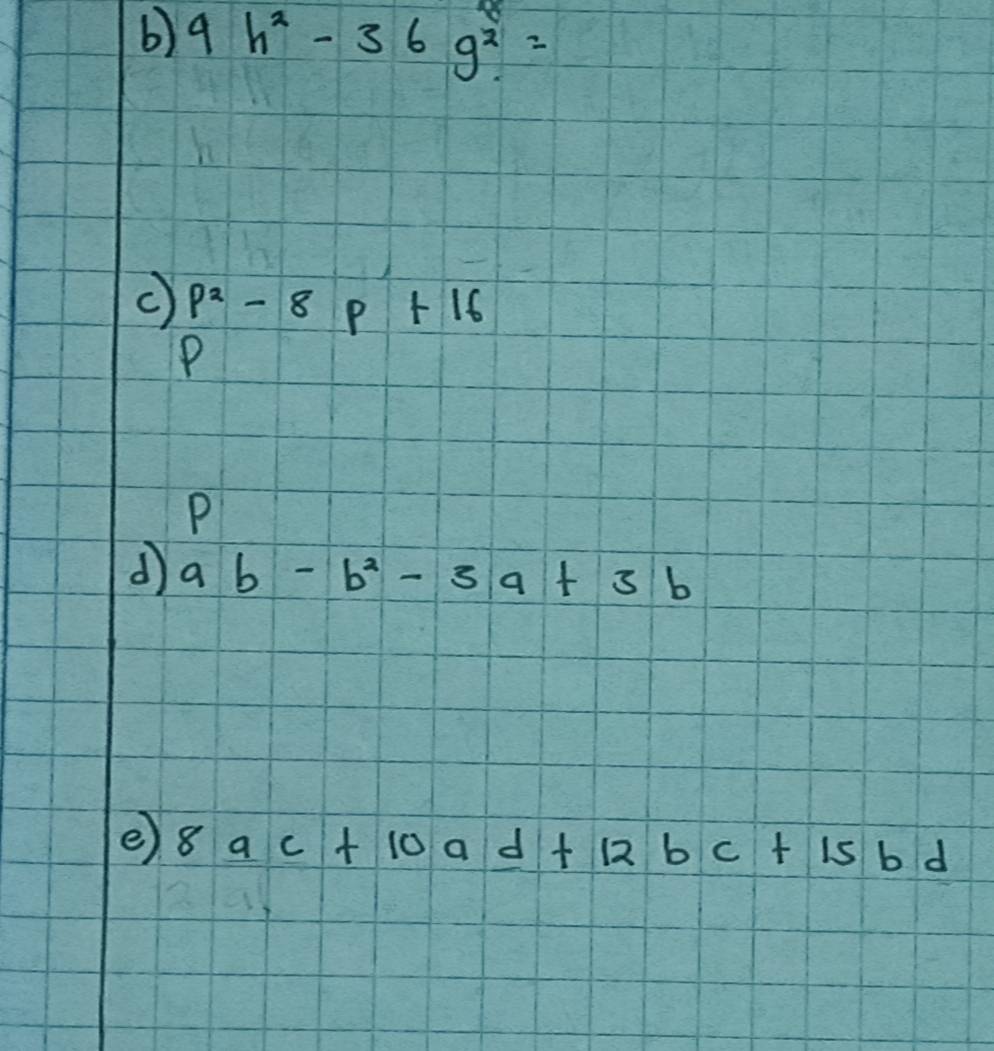 b) 9 h² - 36 g² =
c) p² - 8 p + 16
p
p
d) a b - b² - 3 a + 3 b
e) 8 a c + 10 a d + 12 b c + 15 b d